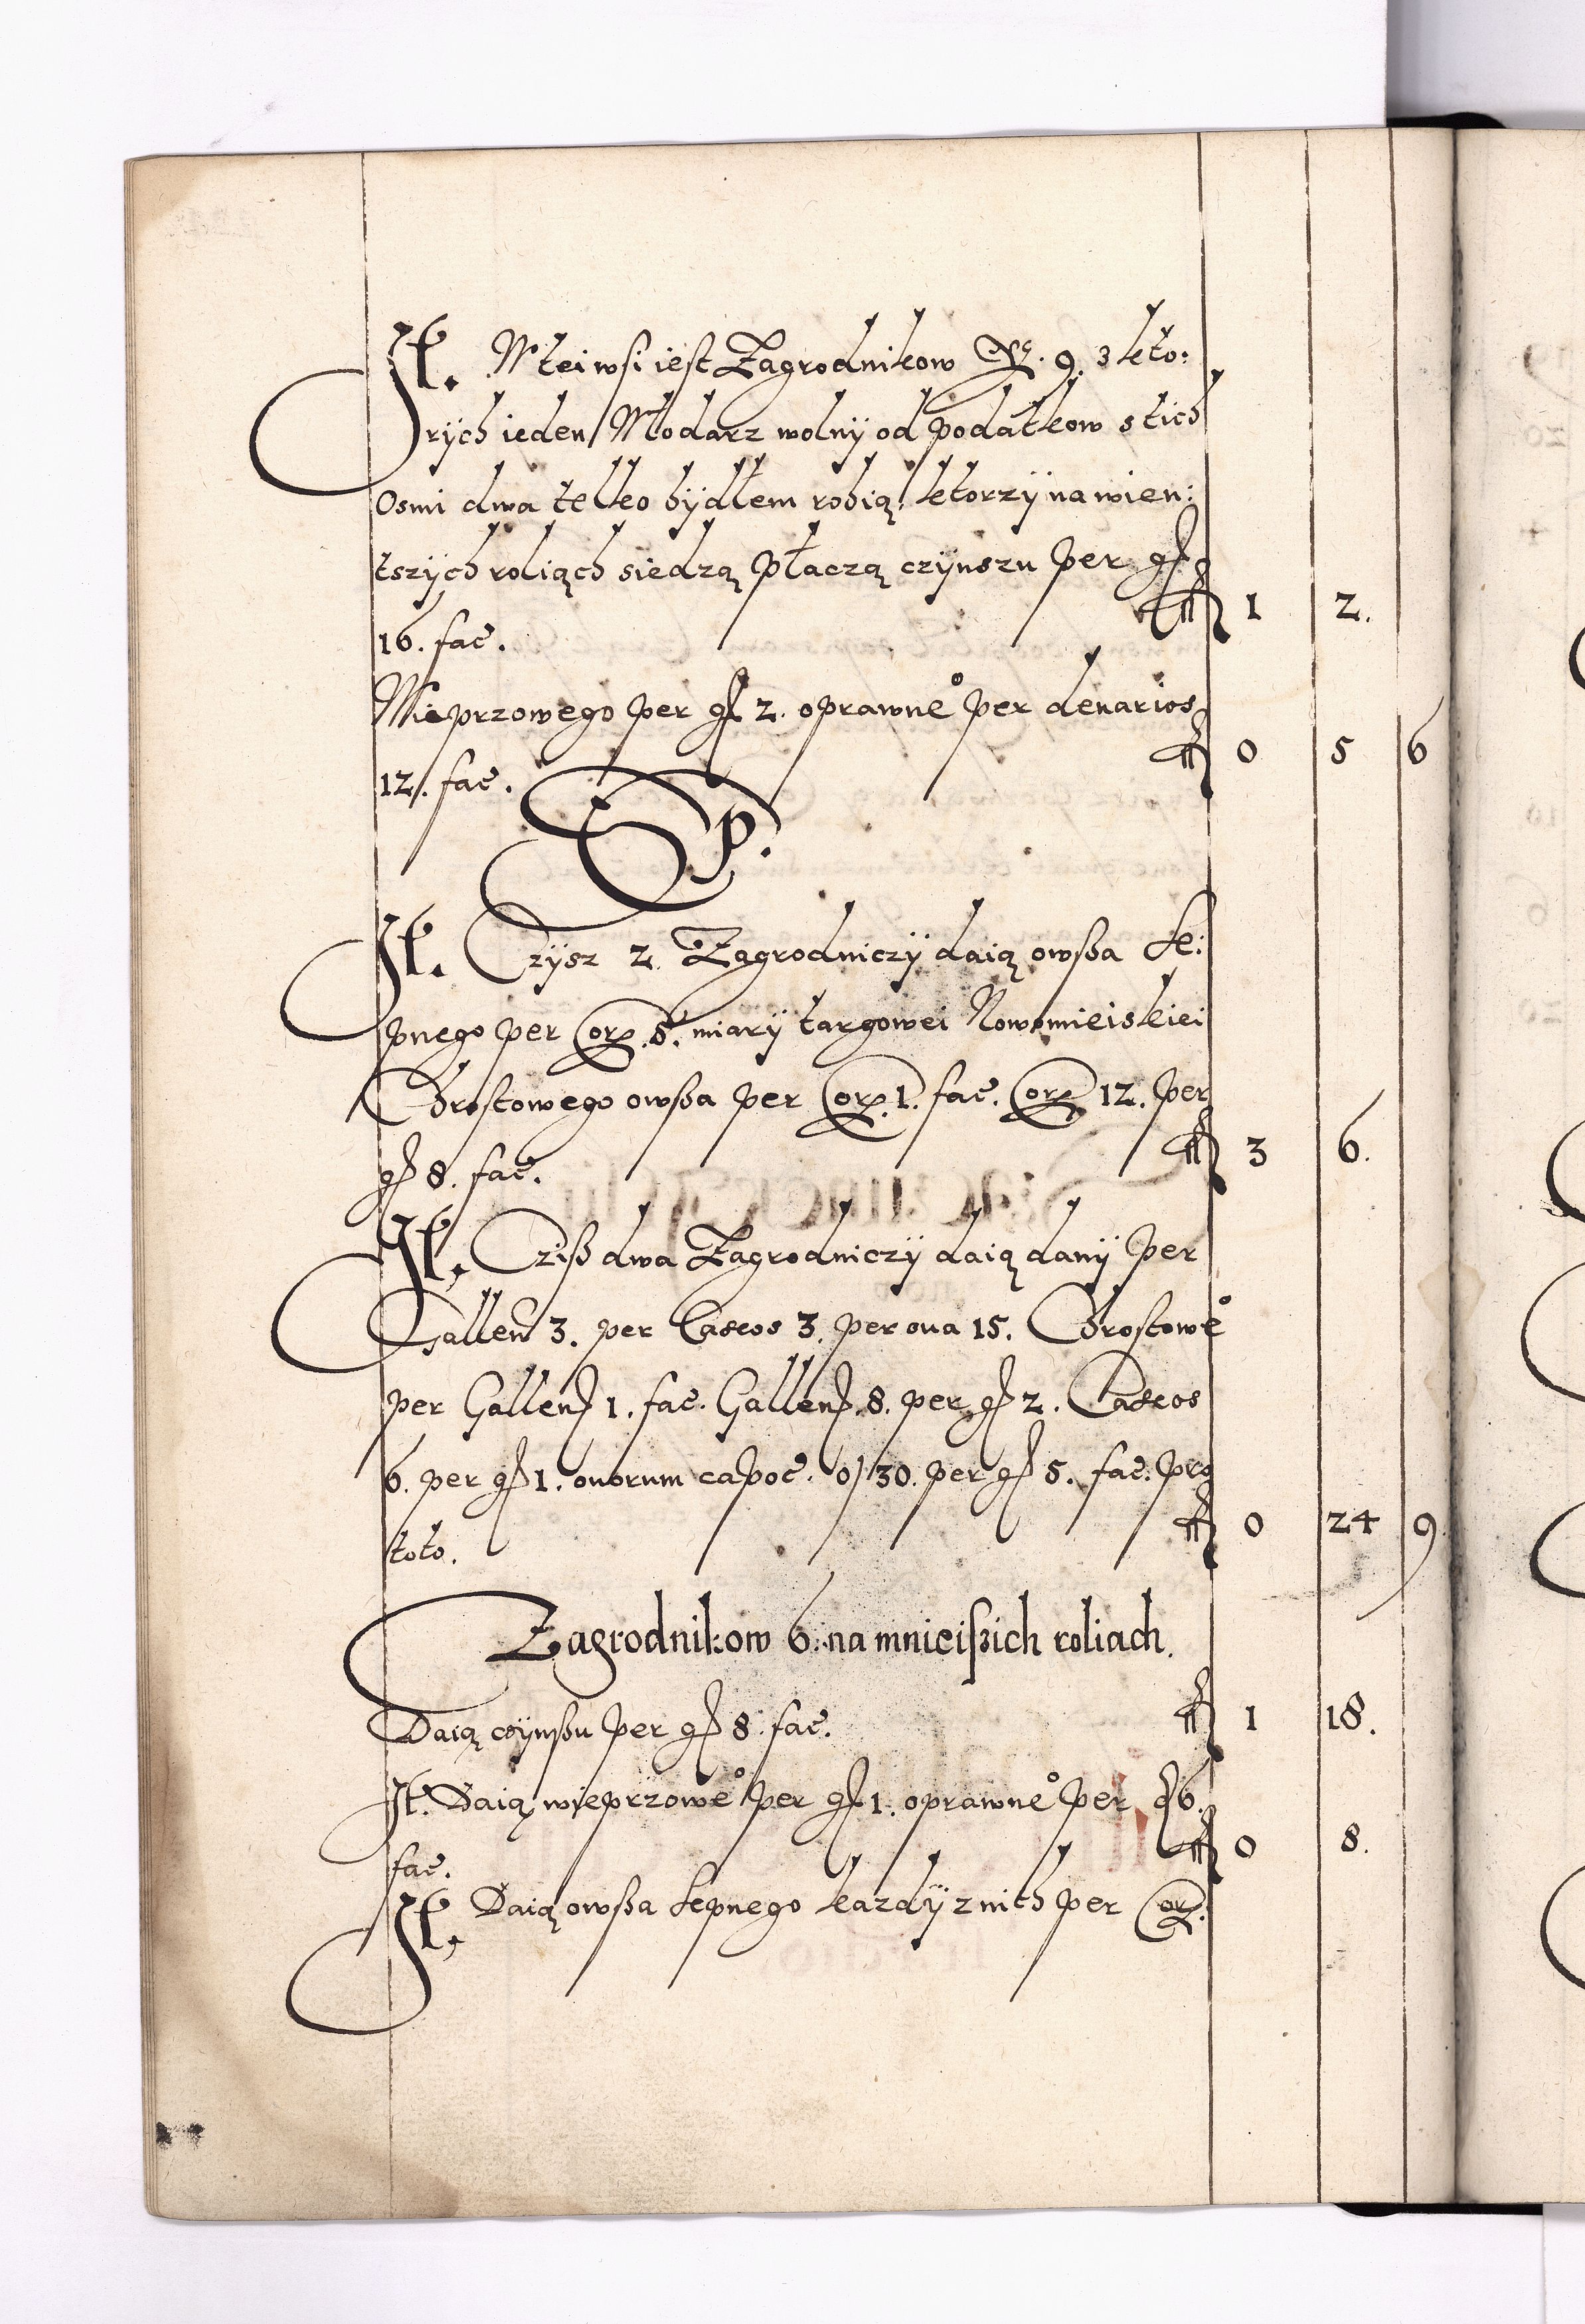 It. W tei wsi iest Zagrodnikow Nr. 9. z kto:
rych ieden Włodarz wolny od podatkow s tich
Osmi dwa telko bydłem robią, ktorzy na wien:
tszych roliąch siedzą płaczą czynszu per gs
16. fac. fl 1 2.
Wieprzowego per gs 2. oprawneo per denarios
12. fac. fl 0 5 6
It. Czysz 2. Zagrodniczy daią owßa se:
pnego per Cor. 5. miary targowei Nowomieiskiei
Chrostowego owßa per Cor. 1. fac. Cor 12. per
gs 8. fac. fl 3 6.
It. Cziß dwa Zagrodniczy daią dany per
Gallen 3. per Caseos 3. per oua 15. Chrostoweo
per Gallens 1. fac. Gallens 8. per gs 2. Caseos
6. per gs 1. ouorum capoe. 0/30. per gs 5. fac. pro
toto. fl 0 24 9.
Zagrodnikow 6. na mnieißich roliach.
Daią czynßu per gs 8. fac. fl 1 18.
It. Daią wieprzoweo per gs 1. oprawneo per d 6.
fac. fl 0 8.
It. Daią owßa sepnego kazdy z nich per Cor.